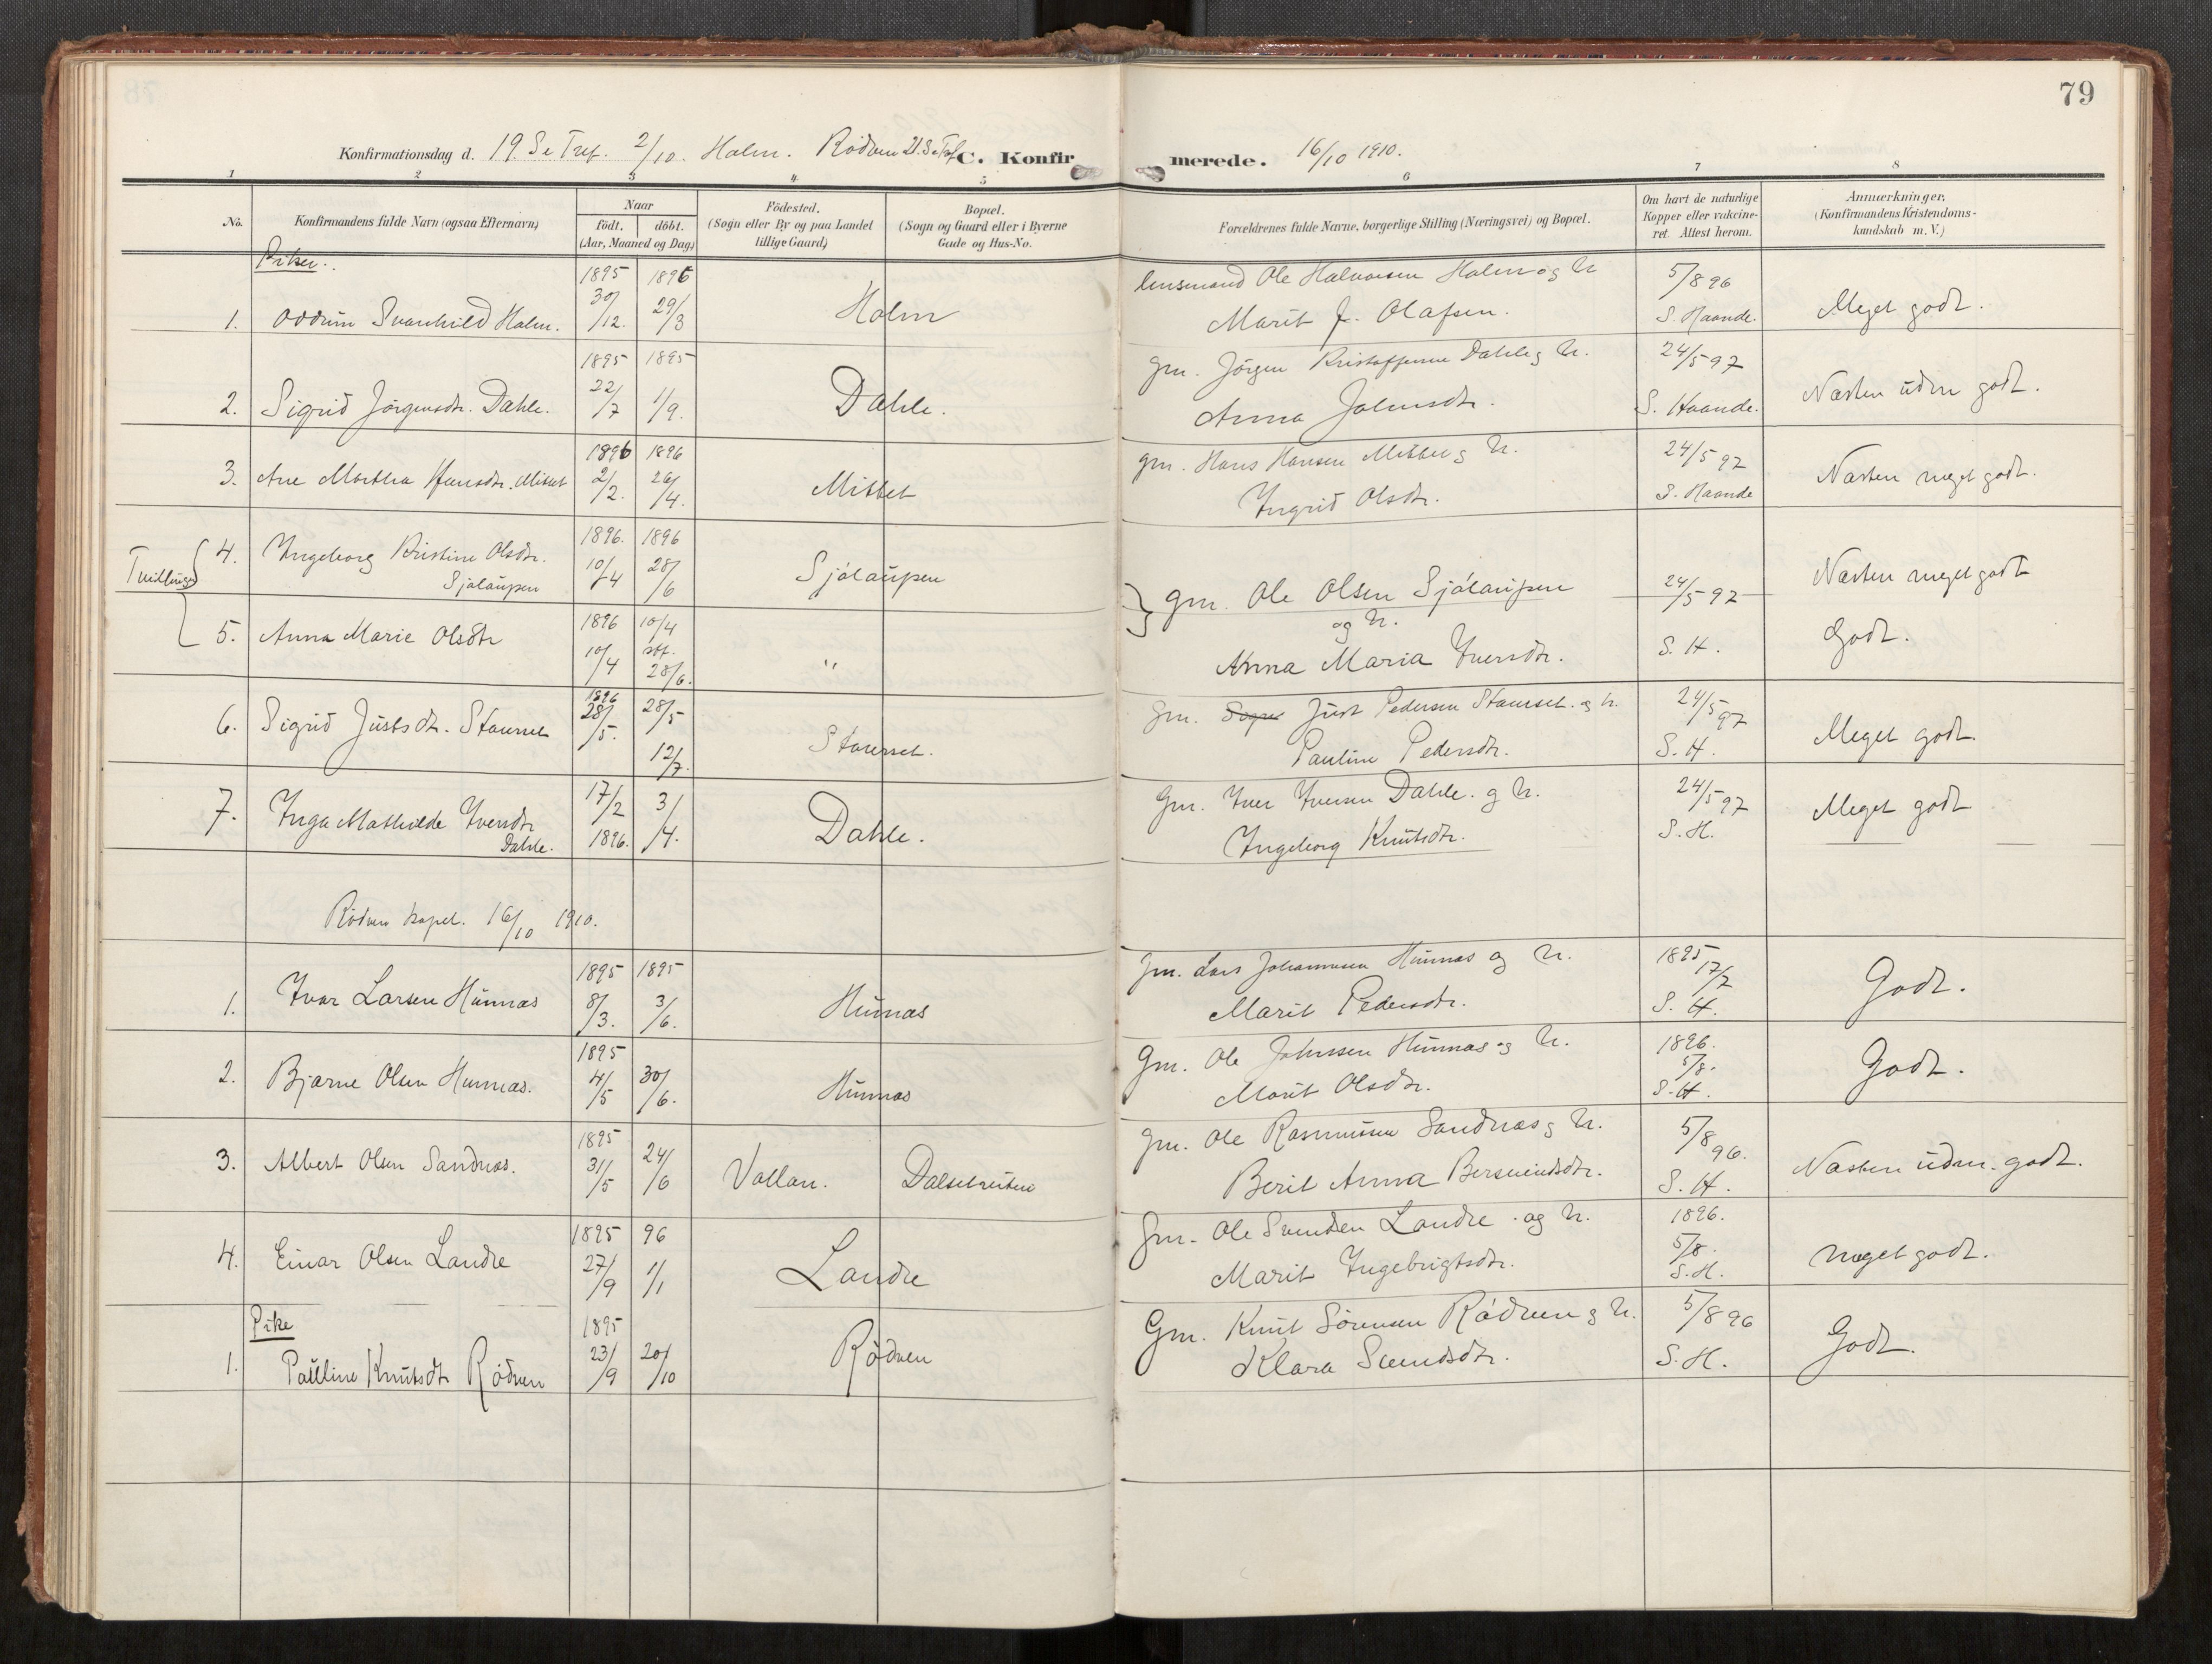 79
Konfirmationsdag d. 19. S e Tref. 2/10. Holm. Rödven 21. S e Tref C. Konfirmerede. 16/10 1910.
1 2 3 4 5 6 7 8
No. Konfirmandens fulde Navn (ogsaa Efternavn) Naar födt. döbt. (Aar, Maaned og Dag) Födested. (Sogn eller By og paa Landet tillige Gaard) Bopæl. (Sogn og Gaard eller i Byerne Gade og Hus-No. Forældrenes fulde Navne, borgerlige Stilling (Næringsvei) og Bopæl. Om havt de naturlige Kopper eller vaccineret. Attest herom. Anmærkninger, (Konfirmandens Kristendomskundskab m. V.)
Piker.
1. Oddrün Svanhild Holm. 1895 30/12. 1896 29/3 Holm lensmand Ole Halvorsen Holm og h
Marit J. Olafsen. 5/8 96 S. Haande. Meget godt.
2. Sigrid Jörgensdr. Dahle. 1895 22/7 1895 1/9. Dahle. Gm. Jörgen Kristoffersen Dahle og h.
Anna Johnsdtr. 24/5 97 S. Haande. Næsten üdm godt.
3. Ane Martha Hansdr. Mittet 1896 2/2. 1896 26/4. Mittet gm. Hans Hansen Mittet og h.
Ingrid Olsdtr. 24/5 97 S. Haande Næsten meget godt.
Tvillinger
4. Ingeborg Kristine Olsdtr.
Sjölaüpen 1896. 10/4 1896 28/6 Sjölaüpen gm. Ole Olsen Sjölaüpen
og h.
Anna Maria Iversdtr. 24/5 97 S. H. Næsten meget godt
5. Anna Marie Olsdtr 1896 10/4 10/4 stf. 28/6. " Godt.
6. Sigrid Jüstsdt. Staurset 1896 28/5. 28/5 12/7. Staurset. Gm. Jüst Pedersen Staurset. og h.
Pauline Pedersdtr. 24/5 97 S. H. Meget godt.
7. Inga Mathilde Iversdtr
Dahle. 17/2 1896. 3/4. Dahle. Gm. Iver Iversen Dahle. og h.
Ingeborg Knütsdtr. 24/5 97 S. H. Meget godt
Rödven kapel. 16/10 1910.
1. Ivar Larsen Hünnæs 1895 8/3. 1895 3/6. Hünnæs Gm. Lars Johannesen Hünnæs og h.
Marit Pedersdtr. 1895 17/7 S. H. Godt.
2. Bjarne Olsen Hunnæs. 1895 4/5 30/6. Hünnæs Gm. Ole Johnssen Hünnæs og h.
Marit Olsdtr. 1896. 5/8. S. H. Godt.
3. Albert Olsen Sandnæs. 1895 31/5 24/6 Vollan. Dalsetreiten gm. Ole Rasmüssen Sandnæs og h.
Berit Anna Bersveindsdtr. 5/8 96. S. H. Næsten üdm. godt.
4. Einar Olsen Landre 1895 27/9 96 1/1 Landre Gm. Ole Svendsen Landre. og h.
Marit Ingebrigtsdtr. 1896. 5/8. S. H. meget godt.
Pike
1. Paüline Knütsdt Rödven 1895 23/9 20/10 Rödven Gm. Knüt Sörensen Rödven og h.
Klara Svendsdtr. 5/8 96 S. H. Godt.